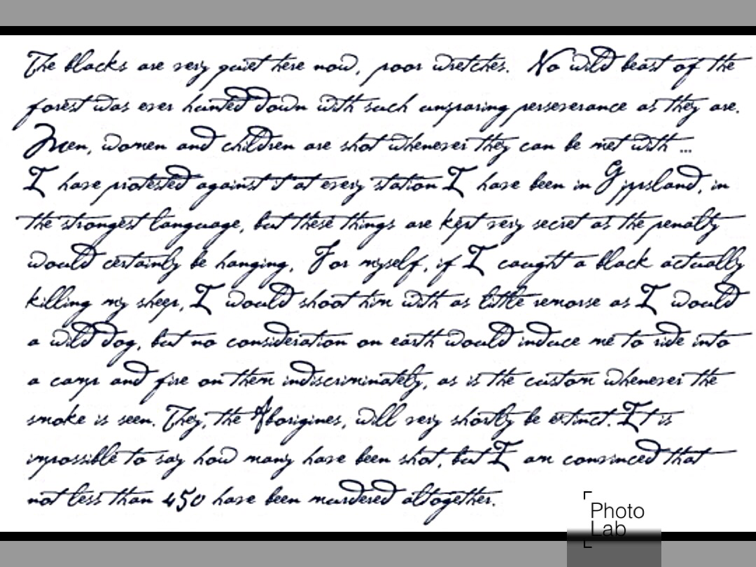 The blacks are very quiet here now, poor wretches. No wild beast of the
forest was ever hunted down with such unsparing perseverance as they are.
Men, women and children are shot whenever they can be met with ...
I have protested against it at every station I have been in Gippsland, in
the strongest language, but these things are kept very secret as the penalty
would certainly be hanging. For myself, if I caught a black actually
killing my sheep, I would shoot him with as little remorse as I would
a wild dog, but no consideration on earth would induce me to ride into
a camp and fire on them indiscriminately, as is the custom whenever the
smoke is seen. They, the Aborigines, will very shortly be extinct. It is
impossible to say how many have been shot, but I am convinced that
not less than 450 have been murdered altogether.
Photo
Lab